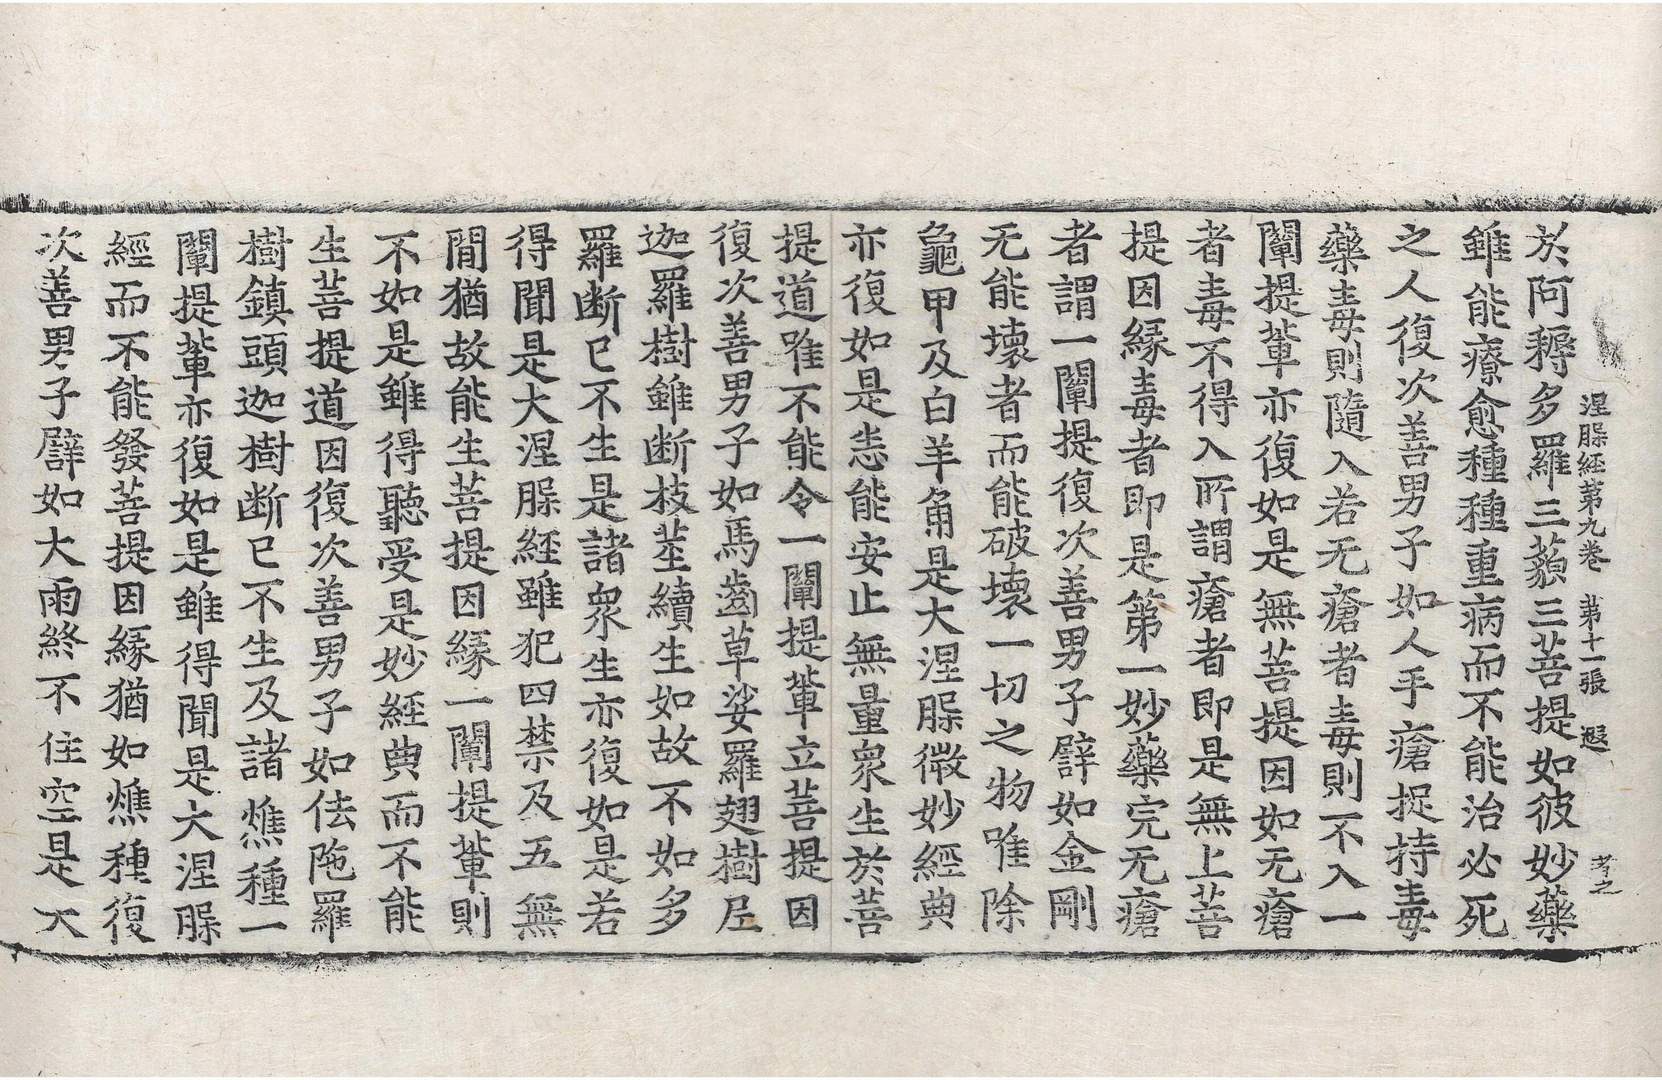 涅槃経第九卷 第十一張 遐 考之
於阿耨多羅三藐三菩提如彼妙藥
雖能療愈種種重病而不能治必死
之人復次善男子如人手瘡捉持毒
藥毒則隨入若无瘡者毒則不入一
闡提輩亦復如是無菩提因如无瘡
者毒不得入所謂瘡者即是無上菩
提因縁毒者即是第一妙藥完无瘡
者謂一闡提復次善男子譬如金剛
无能壞者而能破壞一切之物唯除
龜甲及白羊角是大涅槃微妙經典
亦復如是悉能安止無量衆生於菩
提道唯不能令一闡提輩立菩提因
復次善男子如馬齒草娑羅翅樹尼
迦羅樹雖断枝莖續生如故不如多
羅断已不生是諸衆生亦復如是若
得聞是大涅槃經雖犯四禁及五無
間猶故能生菩提因縁一闡提輩則
不如是雖得聽受是妙經典而不能
生菩提道因復次善男子如佉陁羅
樹鎮頭迦樹断已不生及諸燋種一
闡提輩亦復如是雖得聞是大涅槃
經而不能發菩提因縁猶如燋種復
次善男子譬如大雨終不住空是大